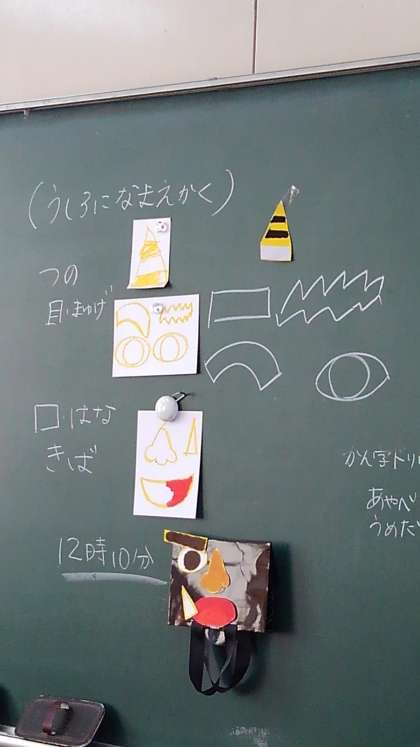 (うしろになまえかく)
つの
目・まゆげ
口・はな
きば
12時10分
かん字ドリ
あやべ
うめだ